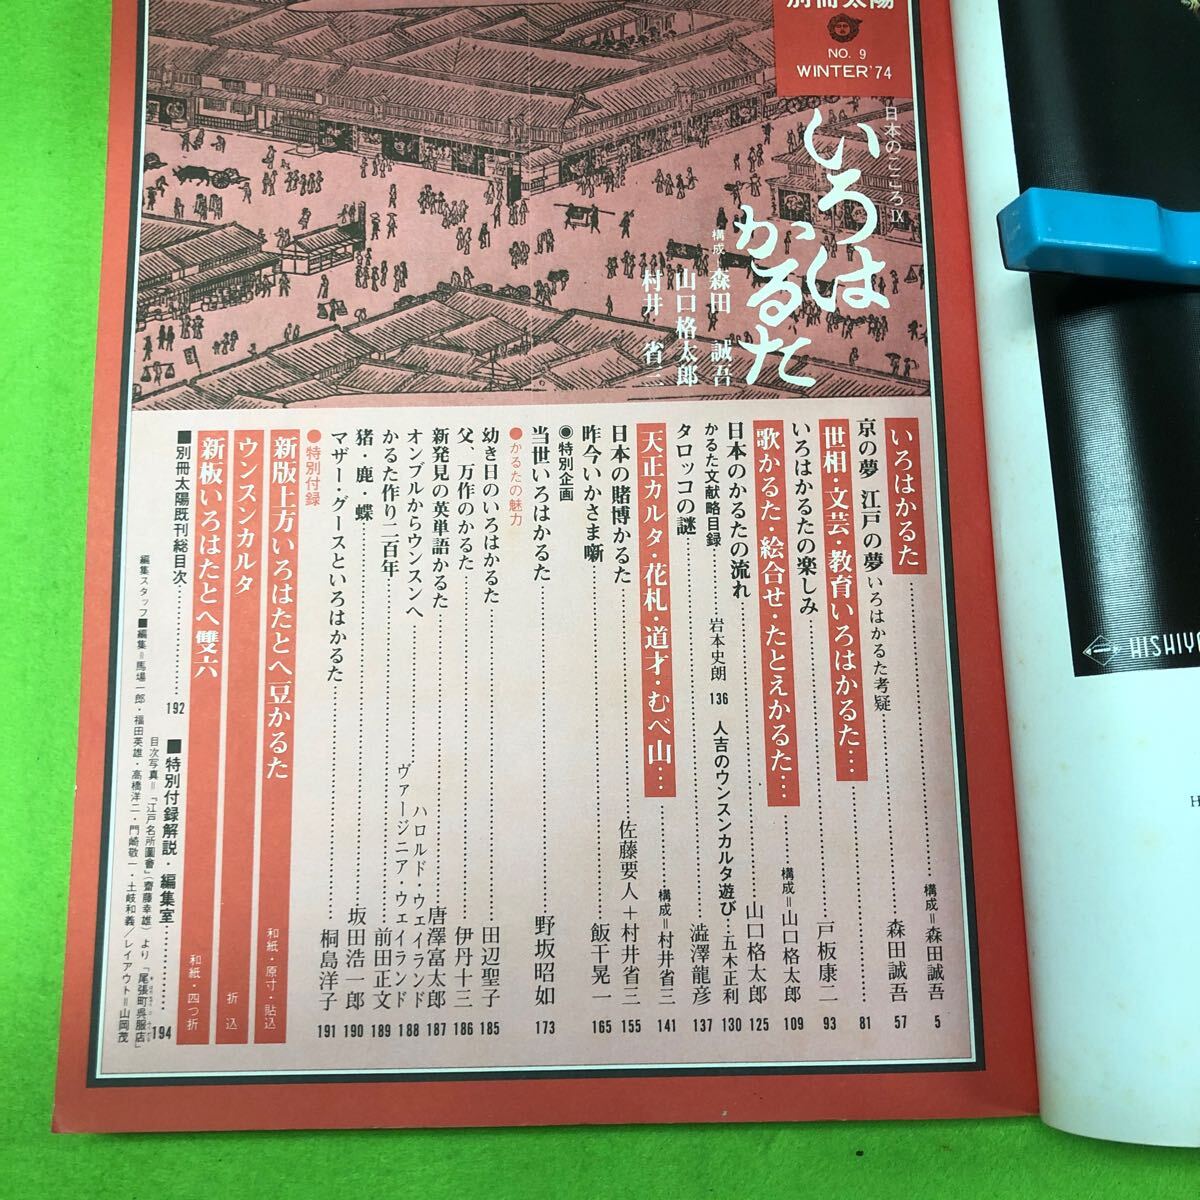 別冊太陽
NO. 9
WINTER '74
日本のこころIX
いろは
かるた
構成=森田 誠吾
山口格太郎
村井 省三
いろはかるた……構成=森田誠吾 5
京の夢 江戸の夢 いろはかるた考疑……森田誠吾 57
世相・文芸・教育いろはかるた… 81
いろはかるたの楽しみ……戸板康二 93
歌かるた・絵合せ・たとえかるた…構成=山口格太郎 109
日本のかるたの流れ……山口格太郎 125
かるた文献略目録……岩本史朗 136
人吉のウンスンカルタ遊び…五木正利 130
タロッコの謎……澁澤龍彦 137
天正カルタ・花札・道才・むべ山…構成=村井省三 141
日本の賭博かるた……佐藤要人+村井省三 155
昨今いかさま噺……飯干晃一 165
◉特別企画
当世いろはかるた……野坂昭如 173
●かるたの魅力
幼き日のいろはかるた……田辺聖子 185
父、万作のかるた……伊丹十三 186
新発見の英単語かるた……唐澤富太郎 187
オンブルからウンスンへ……ハロルド・ウェイランド
ヴァージニア・ウェイランド 188
かるた作り二百年……前田正文 189
猪・鹿・蝶……坂田浩一郎 190
マザー・グースといろはかるた……桐島洋子 191
●特別付録
新版上方いろはたとへ豆かるた 和紙・原寸・貼込
ウンスンカルタ 折込
新板いろはたとへ雙六 和紙・四つ折
■別冊太陽既刊総目次……192
■特別付録解説・編集室……194
目次写真=「江戸名所圖會」(齋藤幸雄)より「尾張町呉服店」
編集スタッフ■編集=馬場一郎・福田英雄・高橋洋二・門崎敬一・土岐和義/レイアウト=山岡茂
HISHIYU
H